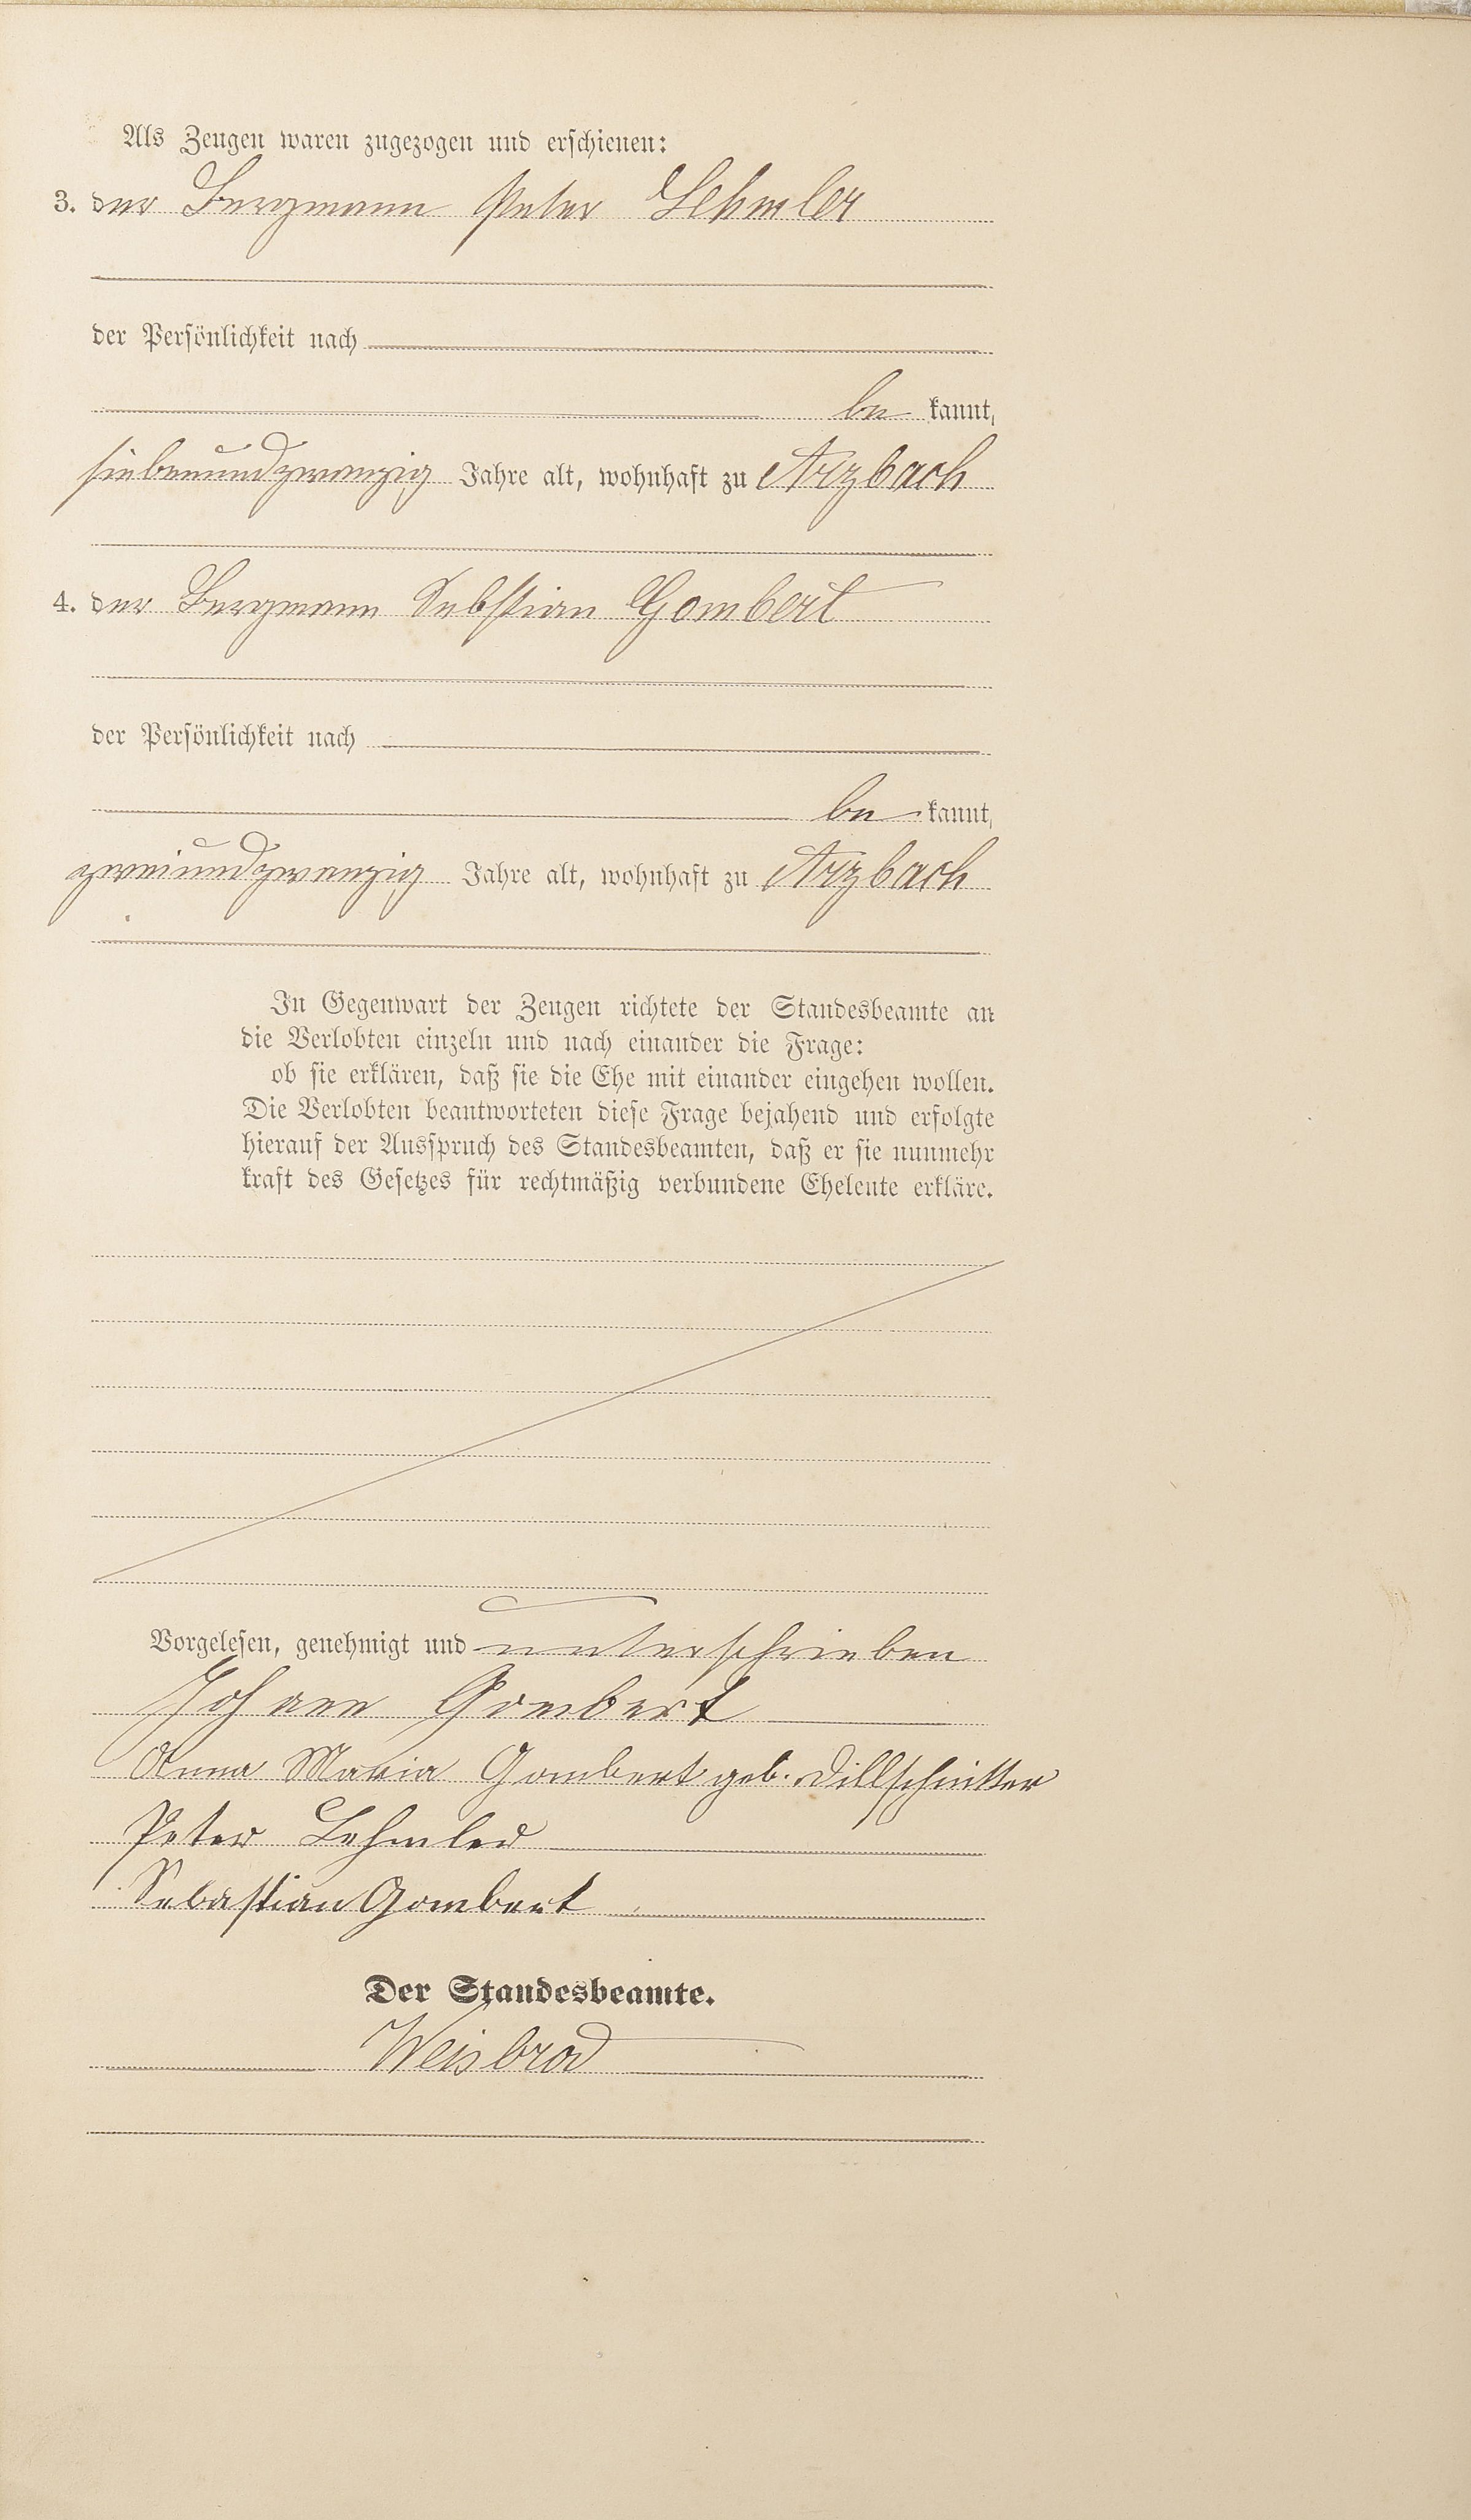 Als Zeugen waren zugezogen und erschienen:
3. der Bergmann Peter Lehmler
der Persönlichkeit nach
be kannt,
siebenundzwanzig Jahre alt, wohnhaft zu Arzbach
4. der Bergmann Sebstian Gombert
der Persönlichkeit nach
be kannt,
zweiundzwanzig Jahre alt, wohnhaft zu Arzbach
In Gegenwart der Zeugen richtete der Standesbeamte an
die Verlobten einzeln und nach einander die Frage:
ob sie erklären, daß sie die Ehe mit einander eingehen wollen.
Die Verlobten beantworteten diese Frage bejahend und erfolgte
hierauf der Ausspruch des Standesbeamten, daß er sie nunmehr
kraft des Gesetzes für rechtmäßig verbundene Eheleute erkläre.
Vorgelesen, genehmigt und unterschrieben
Johann Gombert
Anna Maria Gombert geb. Dillschnitter
Peter Lehmler
Sebastian Gombert
Der Standesbeamte.
Weisbrod